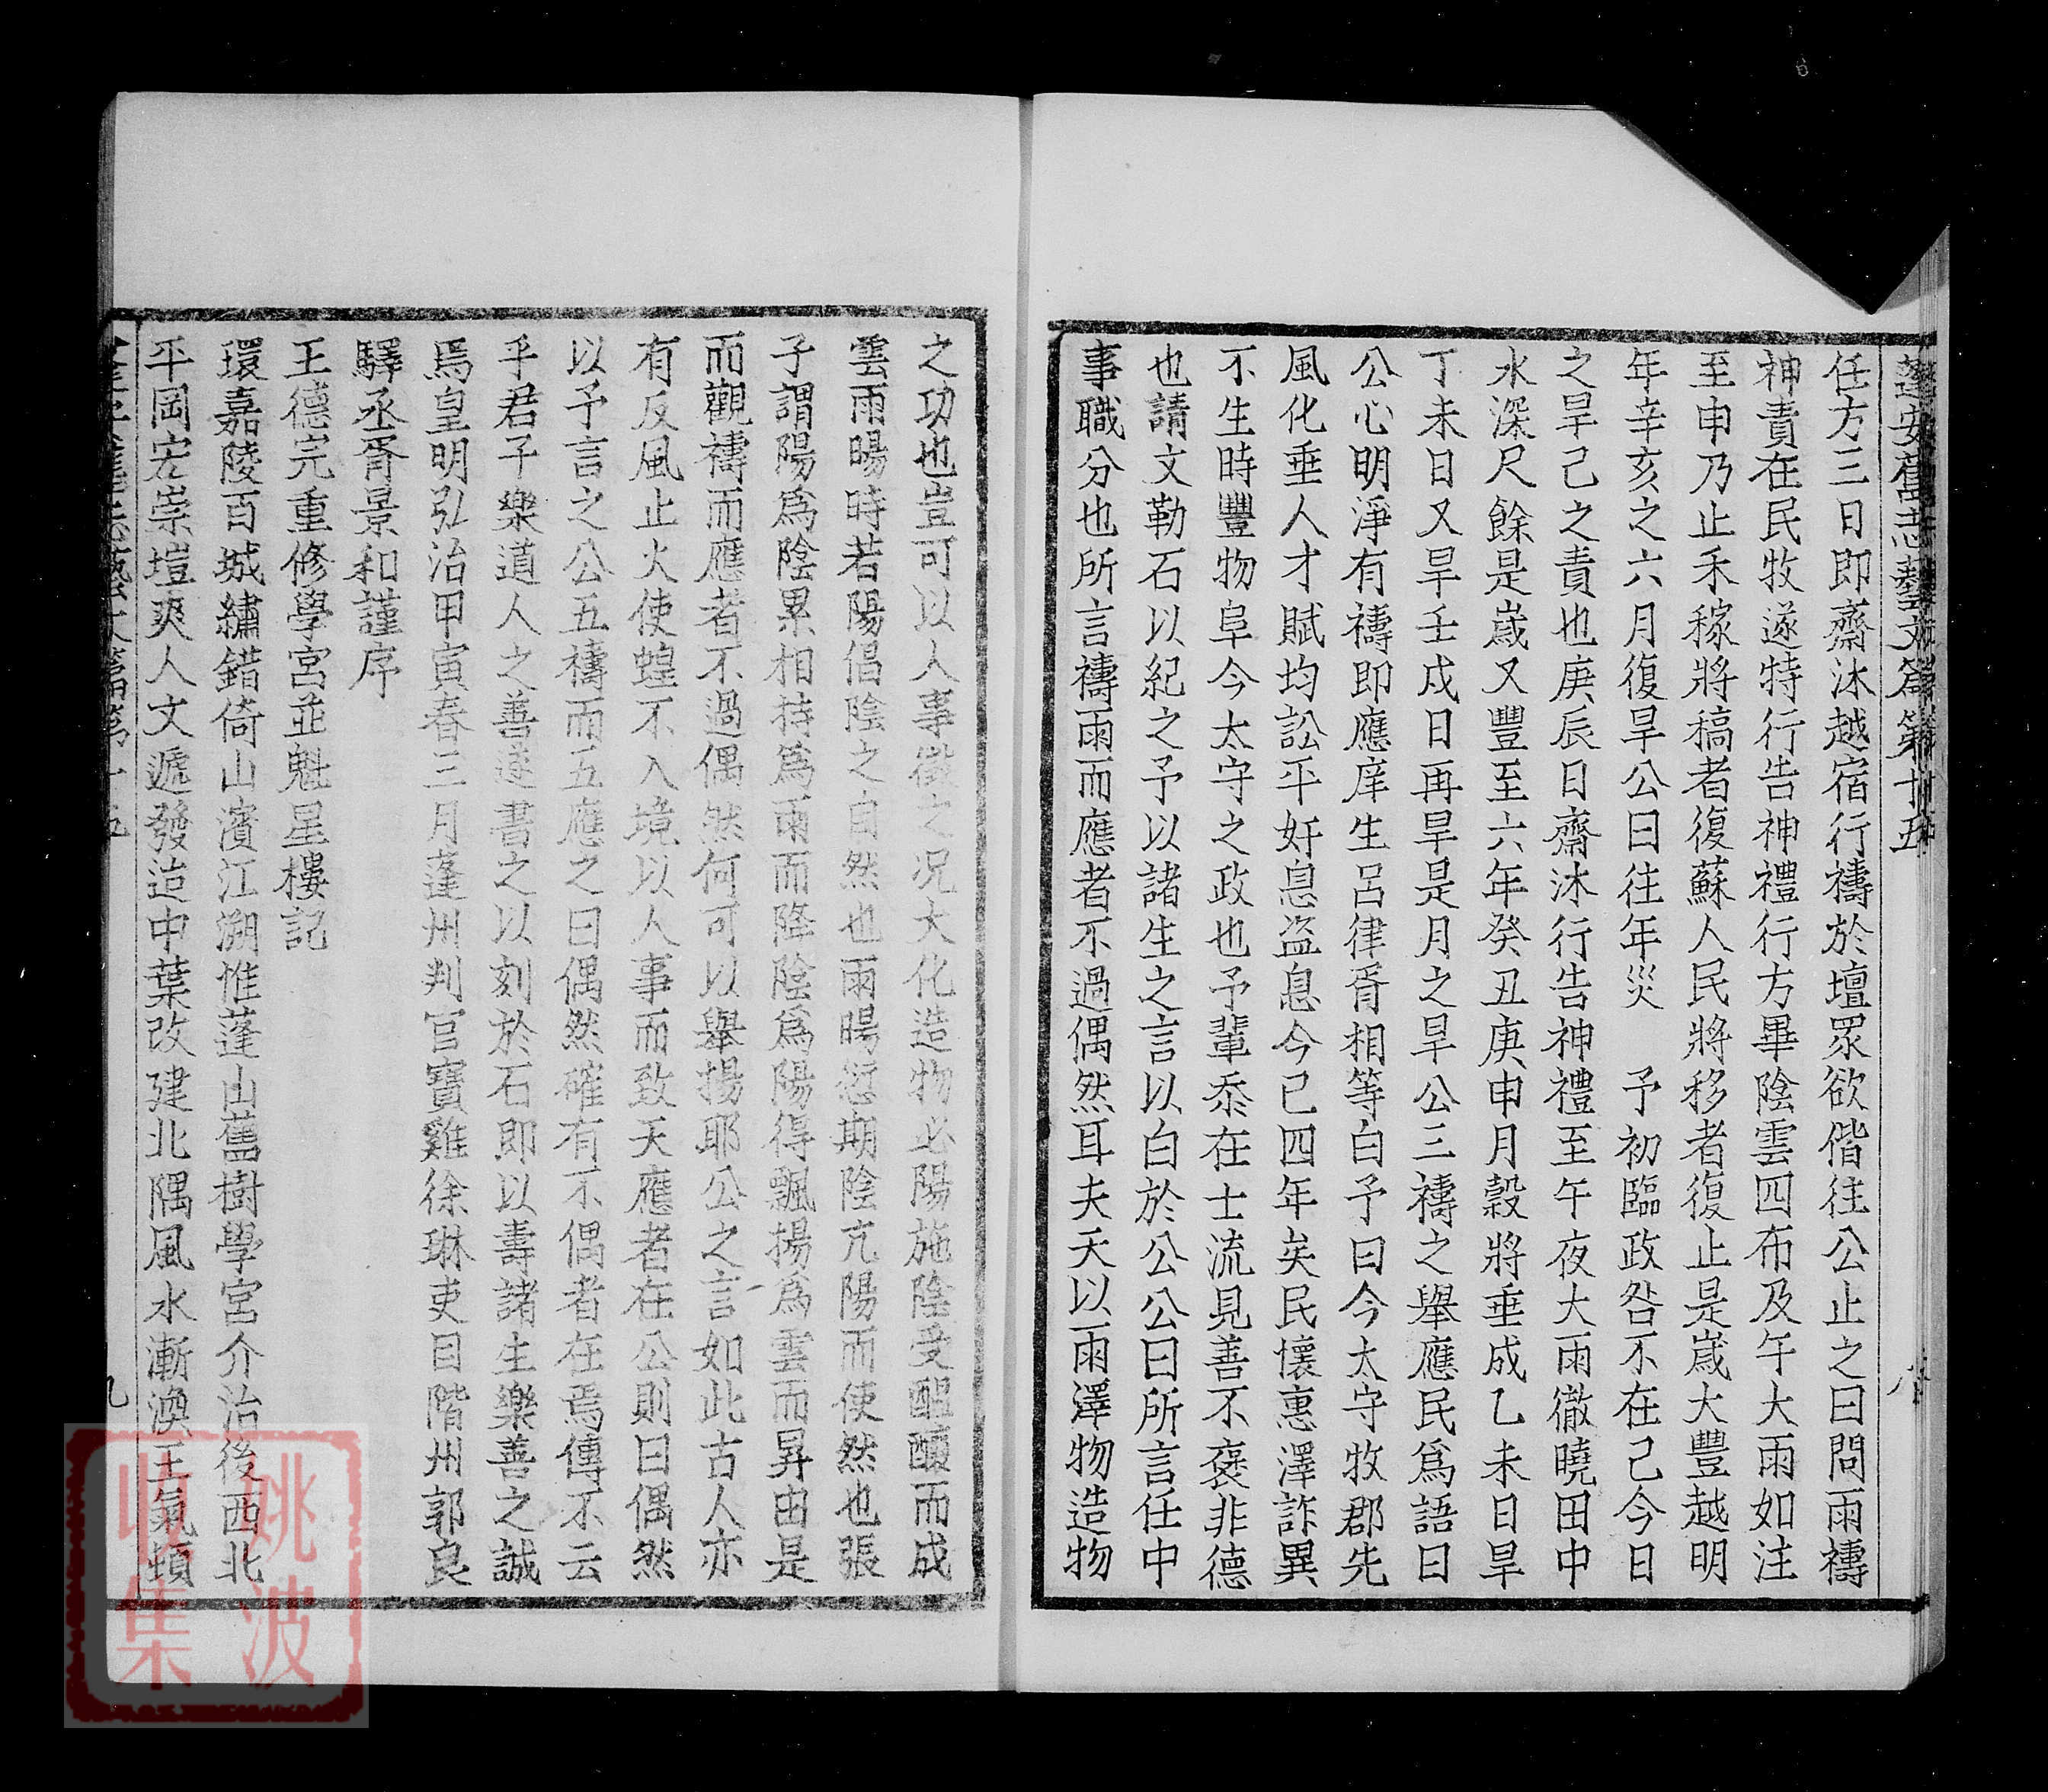 蓬安舊志藝文篇第十五
八
任方三日即齋沐越宿行禱於壇眾欲偕往公止之曰問雨禱
神責在民牧遂特行行告神禮行方畢陰雲四布及午大雨如注
至申乃止禾稼將稿者復蘇人民將移者復止是嵗大豐越明
年辛亥之六月復旱公曰往年災　予初臨政咎不在己今日
之旱己之責也庚辰日齋沐行告神禮至午夜大雨徹曉田中
水深尺餘是嵗又豐至六年癸丑庚申月穀將垂成乙未日旱
丁未日又旱壬戌日再旱是月之旱公三禱之舉應民爲語曰
公心明淨有禱即應庠生呂律胥相等白予曰今太守牧郡先
風化垂人才賦均訟平奸息盜息今已四年矣民懷惠澤詐異
不生時豐物阜今太守之政也予輩忝在士流見善不褒非德
也請文勒石以紀之予以諸生之言以白於公公曰所言任中
事職分也所言禱雨而應者不過偶然耳夫天以雨澤物造物
之功也豈可以人事徵之况大化造物必陽施陰受醞釀而成
雲雨暘時若陽倡陰之自然也雨暘愆期陰亢陽而使然也張
子謂陽爲陰累相持爲雨而降陰爲陽得飄揚爲雲而昇由是
而觀禱而應者不過偶然何可以舉揚耶公之言如此古人亦
有反風止火使蝗不入境以人事而致天應者在公則曰偶然
以予言之公五禱而五應之曰偶然確有不偶者在焉傳不云
乎君子樂道人之善遂書之以刻於石即以壽諸生樂善之誠
焉皇明弘治甲寅春三月蓬州判官寶雞徐琳吏目階州郭良
驛丞胥景和謹序
王德完重修學宮並魁星樓記
環嘉陵百城繡錯倚山濱江溯惟蓬山舊樹學宮介治後西北
平岡宏崇塏爽人文遞發迨中葉改建北隅風水漸渙王氣頓
九
姚波
收集